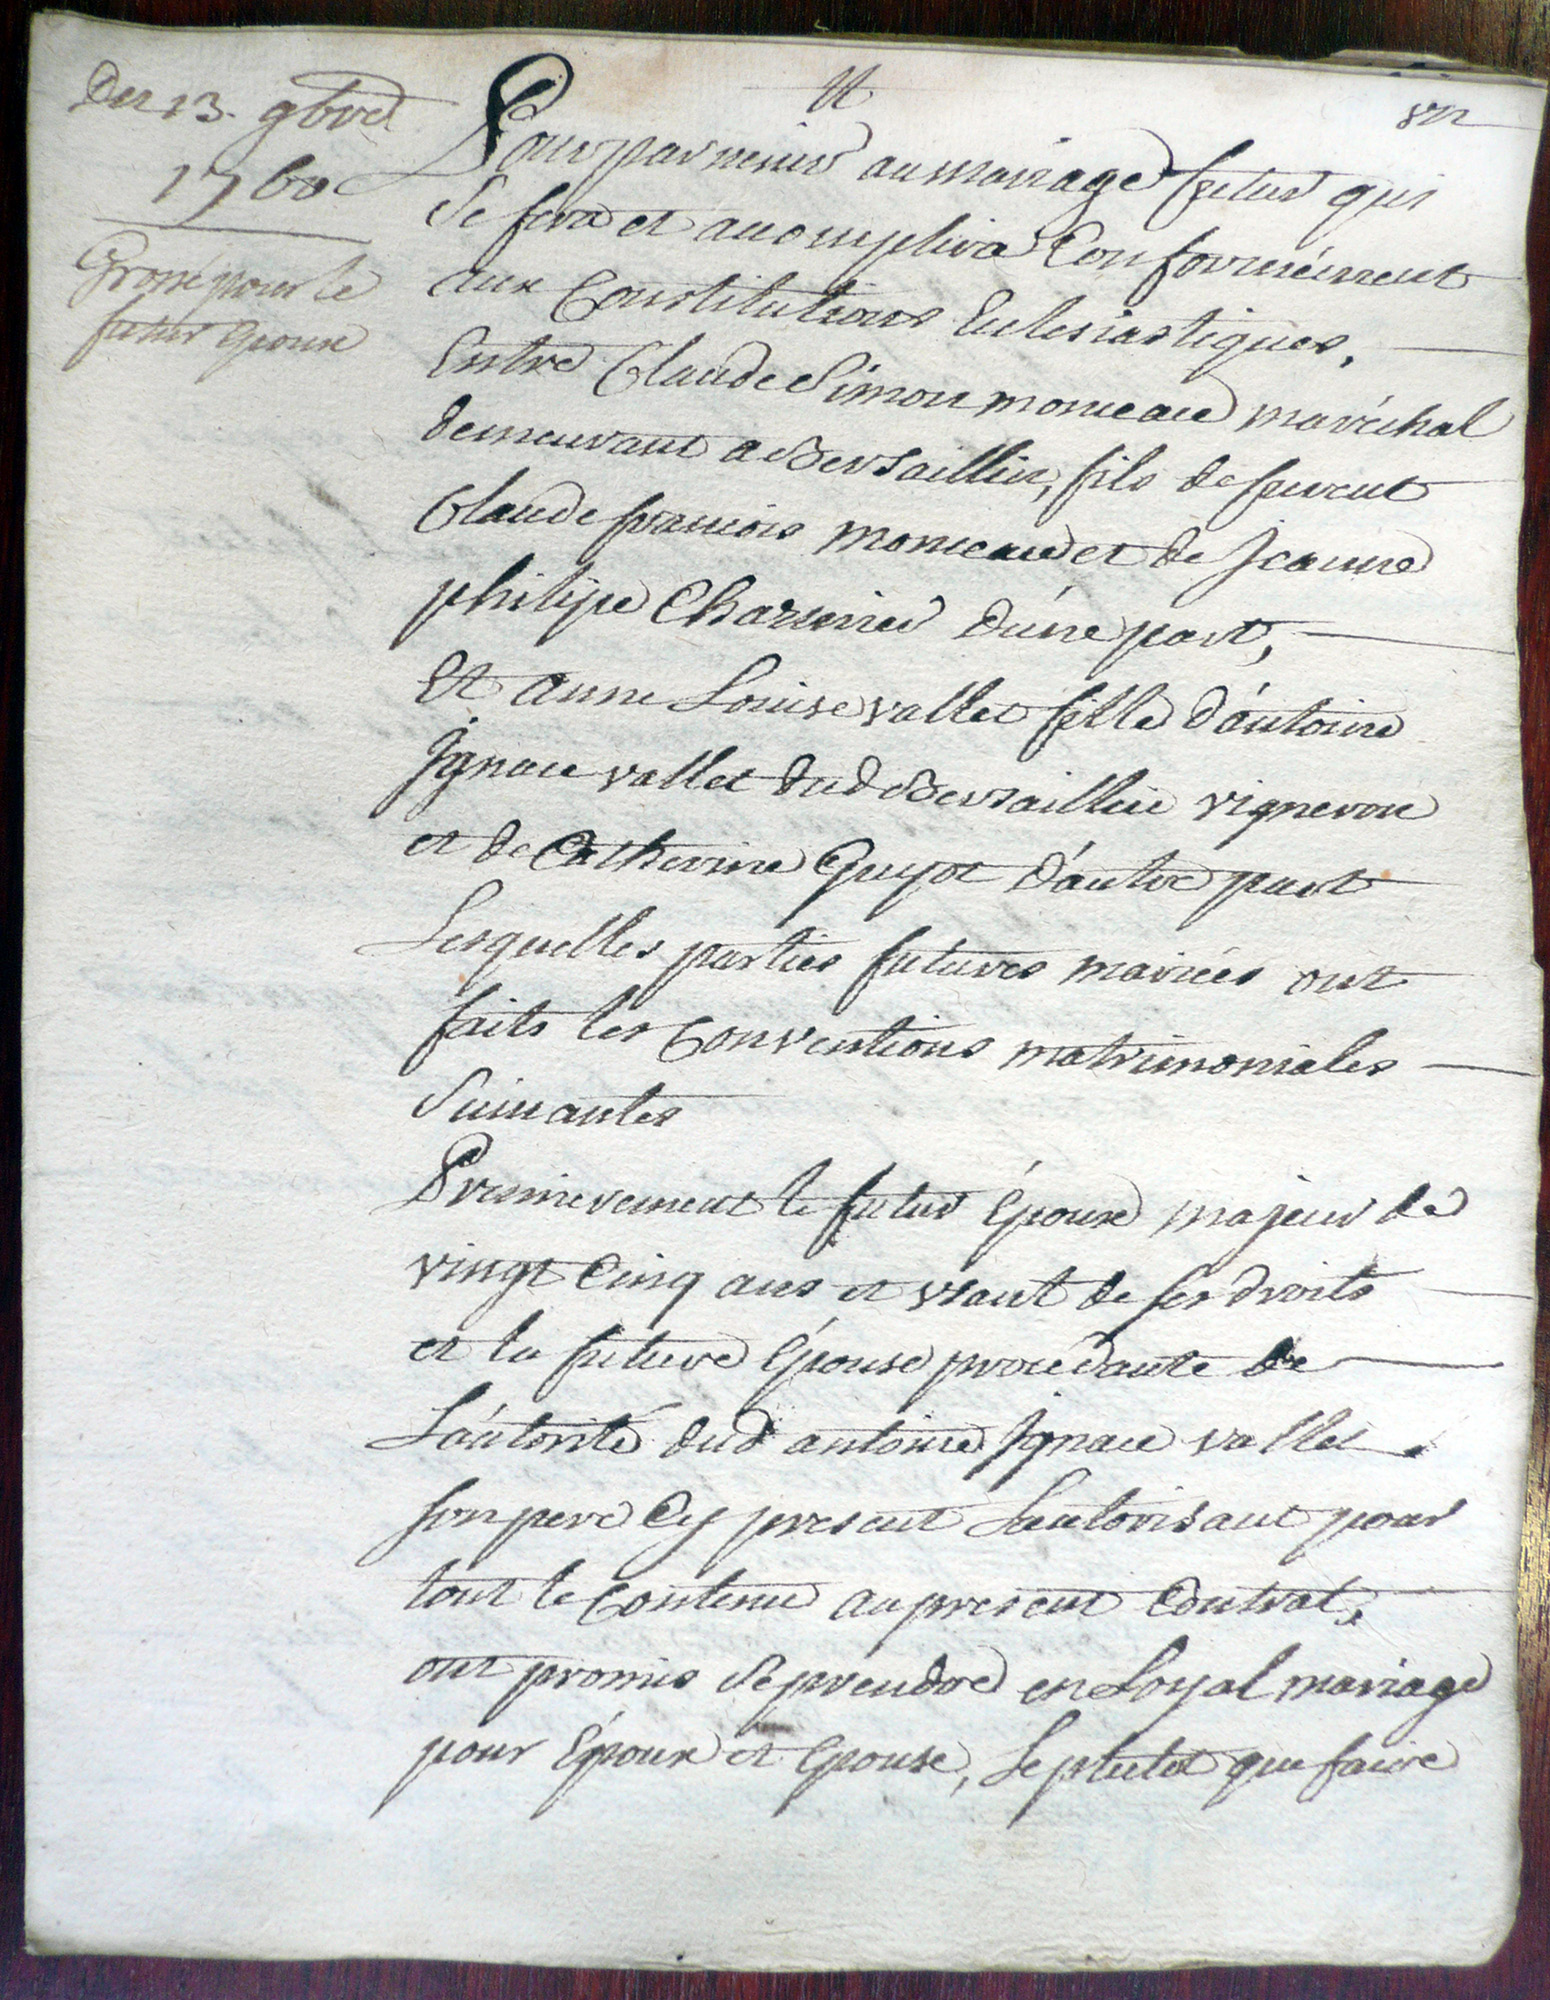 Du 13. 9bre
1760
Grossé pour le
futur époux
Pour parvenir au mariage futur qui
Se fera et accomplira Conformément
aux Constitutions Eclesiastiques,
Entre Claude Simon monceau maréchal
demeurant a Versaillin, fils de furent
Claude francois monceau et de Jeanne
philipe dúne part,
Et anne Louise vallet fille dántoine
Jgnace vallet dud Versaillin vigneron
et de Catherine Guyot dáutre part
Lesquelles parties futures mariées ont
faits les Conventions matrimoniales
Suivantes
Premierement le futur Époux majeur de
vingt Cinq ans et usant de ses droits
et la future Épouse procédante de
Láutorité dud antoine Jgnace vallet
son pere Cy present Lautorisant pour
tout le Contenu au present Contrat,
ont promis Se prendre en Loyal mariage
pour Époux et Épouse, Le plutot que faire